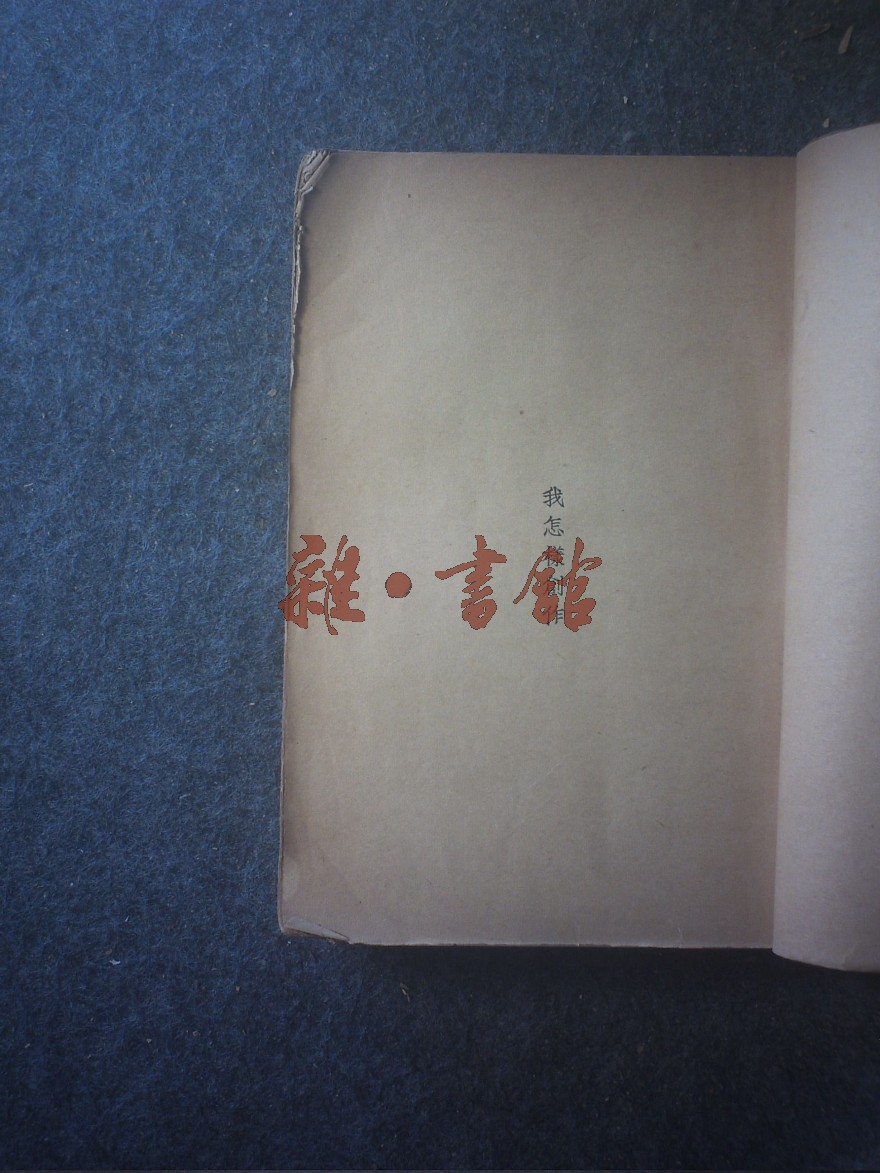 我怎樣創作
雜·書館